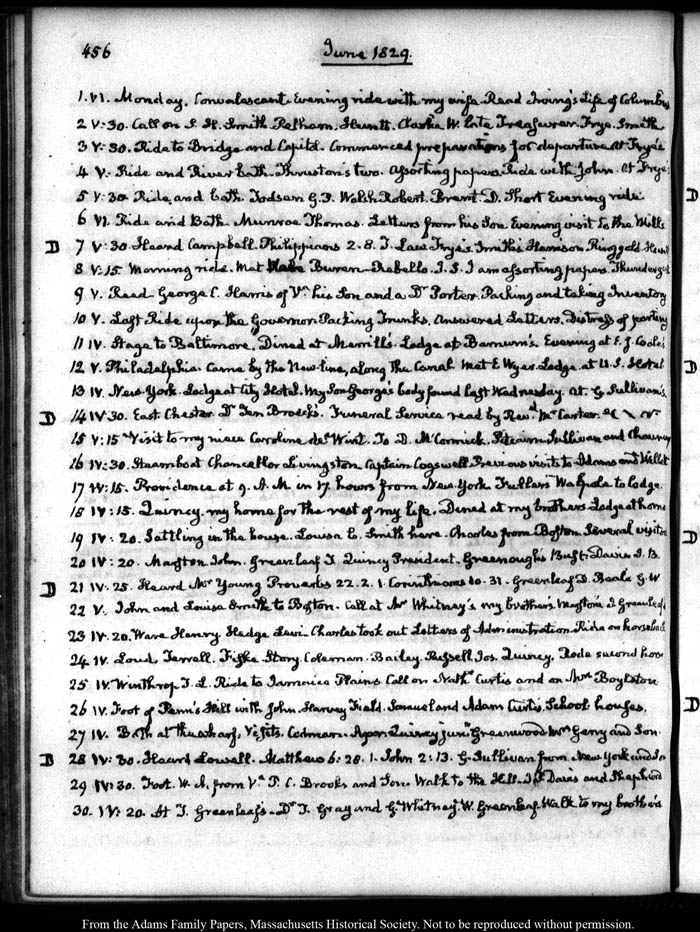 456 June 1829.
1. VI. Monday. Convalescent. Evening ride with my wife. Read Irving's Life of Columbus
2 V:30. Call on S. H. Smith Pelham, Huntt. Clarke W. late Treasurer. Frye. Smith
3 V:30. Ride to Bridge and Capitol. Commenced preparations for departure. At Frye's
4 V. Ride and River bath. Thruston's two. Assorting papers. Ride with John. At Frye's
5 V:30 Ride, and bath. Todson G. P. Walsh Robert. Brent. D. Short Evening ride
6 VI. Ride and Bath. Munroe Thomas. Letters from his Son Evening visit to the Mills
D 7 V:30. Heard Campbell. Philippians 2.8. T. Frye's. Smith's Harrison Ringgold Huntt
8 V:15. Morning ride. Met Buren. Rebello. T. S. I am assorting papers. Thundergust
9 V. Read George C. Harris of his Son and a Dr Porter. Packing and taking Inventory
10 V. Last Ride upon the Governor. Packing Trunks. Answered Letters. Distress of parting
11 IV. Stage to Baltimore. Dined at Merrill's. Lodge at Barnum's. Evening at F. J. Coale's
12 V. Philadelphia. Came by the New line, along the Canal. Met E Wyer. Lodge at U.S. Hotel
13 IV. New York. Lodge at City Hotel. My Son George's body found last Wednesday. At G Sullivan's
D 14 IV:30. East Chester. Dr Ten Broeck's. Funeral Service read by Revd. Mr Carter.
15 V:15 Visit to my niece Caroline de Wint. To D. McCormick. Sullivan and Chauncey
16 IV:30. Steamboat Chancellor Livingston Captain Cogswell. Previous visits to Adams and
17 IV:15. Providence at 9. A.M. in 17 hours from New-York. Fuller's Walpole to lodge.
18 IV:15. Quincy, my home for the rest of my life. Dined at my brother's. Lodge at home
19 IV:20. Settling in the house. Louisa C. Smith here. Charles from Boston. Several visitors
20 IV:20. Marston John. Greenleaf T. Quincy President. Greenough's Bust. Davis I. B.
D 21 IV:25. Heard Mr Young Proverbs 22.2. 1. Corinthians 10.31. Greenleaf D. Beale G. W
22 V. John and Louisa Smith to Boston. Call at Mr Whitney's my brother's Marston's D Greenleaf's
23 IV:20. Ware Henry. Hedge Levi. Charles took out Letters of Administration. Ride on horseback
24 IV. Loud. Terrall. Fiske. Story. Coleman. Bailey. Russell Jos. Quincy. Rode second horse
25 IV. Winthrop T. L. Ride to Jamaica Plains Call on Nathl Curtis and on Mrs Boylston
26 IV. Foot of Penn's Hill with John. Harvey Field. Samuel and Adam Curtis. School houses.
27 IV. Bath at the wharf. Visits. Codman. Quincy junr. Greenwood Mrs Gerry and Son
D 28 IV:30. Heard Lowell. Matthew 6:20. 1. John 2:13. G. Sullivan from New York and Son
29 IV:30. Foot. from P. C. Brooks and Son. Walk to the Hill. Davis and Shepherd
30. IV:20. At T. Greenleaf's. Dr T. Gray and G. Whitney. W. Greenleaf. Walk to my brother's
From the Adams Family Papers, Massachusetts Historical Society. Not to be reproduced without permission.